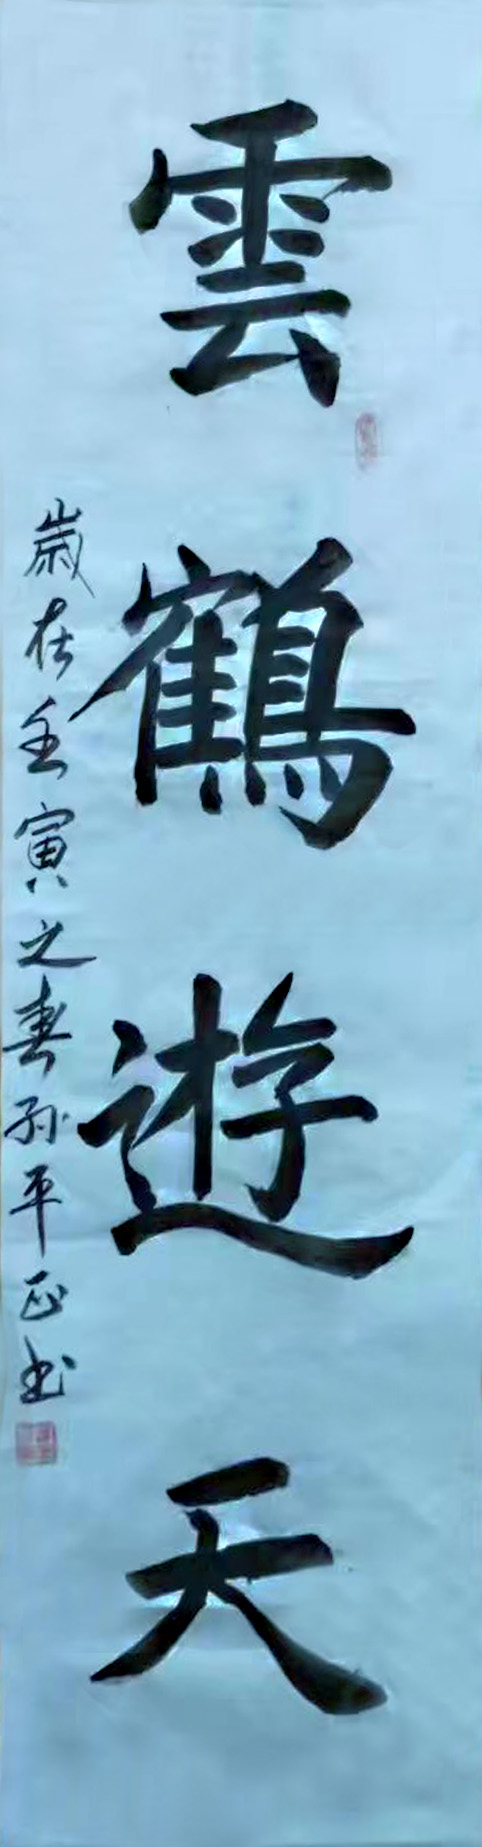 雲鶴遊天
歲在壬寅之春孫平正书